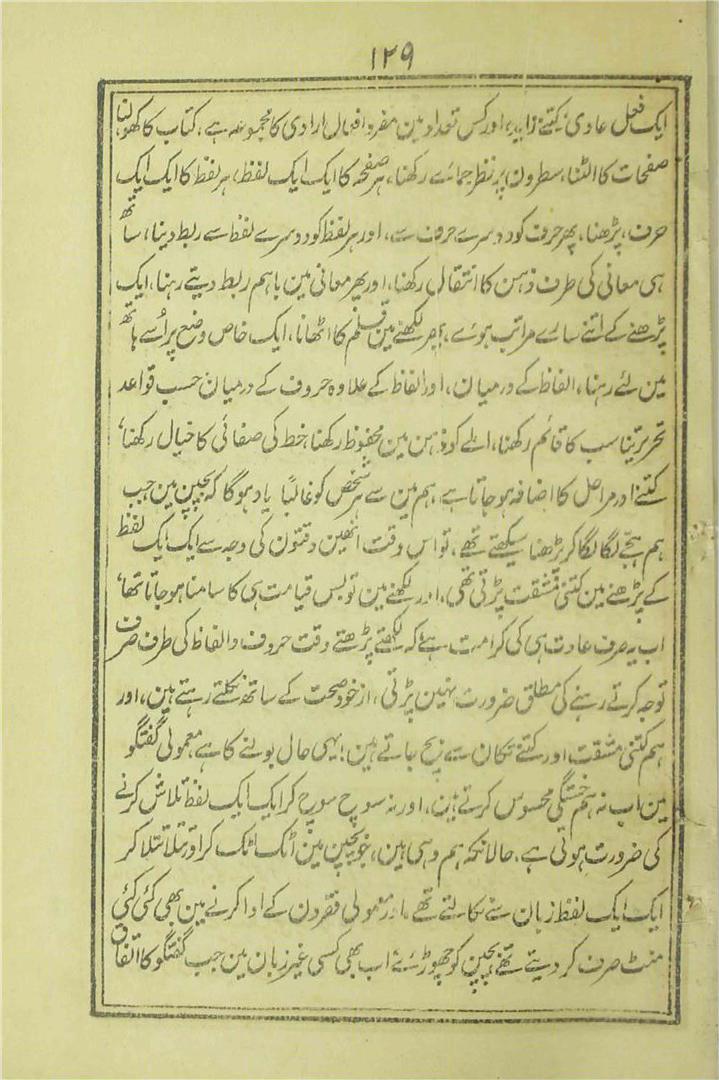 ۱۲۹
ایک فعل عادی کتنے زاید، اور کس تعداد مین مفرد افعال ارادی کا مجموعہ ہے، کتاب کا کھولنا
صفحات کا الٹنا، سطرون پر نظر جمائے رکھنا، ہر صفحہ کا ایک ایک لفظ، ہر لفظ کا ایک ایک
حرف، پڑھنا، پھر حرف کو دوسرے حرف سے، اور ہر لفظ کو دوسرے لفظ سے ربط دینا، ساتھ
ہی معانی کی طرف ذہن کا انتقال رکھنا، اور پھر معانی مین باہم ربط دیتے رہنا، ایک
پڑھنے کے اتنے سارے مراتب ہوے، پھر لکھنے مین قلم کا اٹھانا، ایک خاص وضع پر اُسے ہاتھ
مین لئے رہنا، الفاظ کے درمیان، اور الفاظ کے علاوہ حروف کے درمیان حسب قواعد
تحریر تناسب کا قائم رکھنا، املے کو ذہن مین محفوظ رکھنا، خط کی صفائی کا خیال رکھنا،
کتنے اور مراحل کا اضافہ ہو جاتا ہے، ہم مین سے ہر شخص کو غالبًا یاد ہوگا کہ بچپن مین جب
ہم ہجے لگا لگا کر پڑھنا سیکھتے تھے، تو اس وقت انھین دقتون کی وجہ سے ایک ایک لفظ
کے پڑھنے مین کتنی مشقت پڑتی تھی، اور لکھنے مین تو بس قیامت ہی کا سامنا ہو جاتا تھا،
اب یہ صرف عادت ہی کی کرامت ہے کہ لکھتے پڑھتے وقت حروف و الفاظ کی طرف صرف
توجہ کرتے رہنے کی مطلق ضرورت نہین پڑتی، از خود صحت کے ساتھ نکلتے رہتے ہین، اور
ہم کتنی مشقت اور کتنے تکان سے بچ جاتے ہین! یہی حال بولنے کا ہے، معمولی گفتگو
مین اب نہ ہم خستگی محسوس کرتے ہین، اور نہ سوچ سوچ کر ایک ایک لفظ تلاش کرنے
کی ضرورت ہوتی ہے، حالانکہ ہم وہی ہین، جو بچپن مین اٹک اٹک کر اور تتلا تتلا کر
ایک ایک لفظ زبان سے نکالتے تھے، اور معمولی فقرون کے ادا کرنے مین بھی کئی کئی
منٹ صرف کر دیتے تھے، بچپن کو چھوڑئے اب بھی کسی غیر زبان مین جب گفتگو کا اتفاق